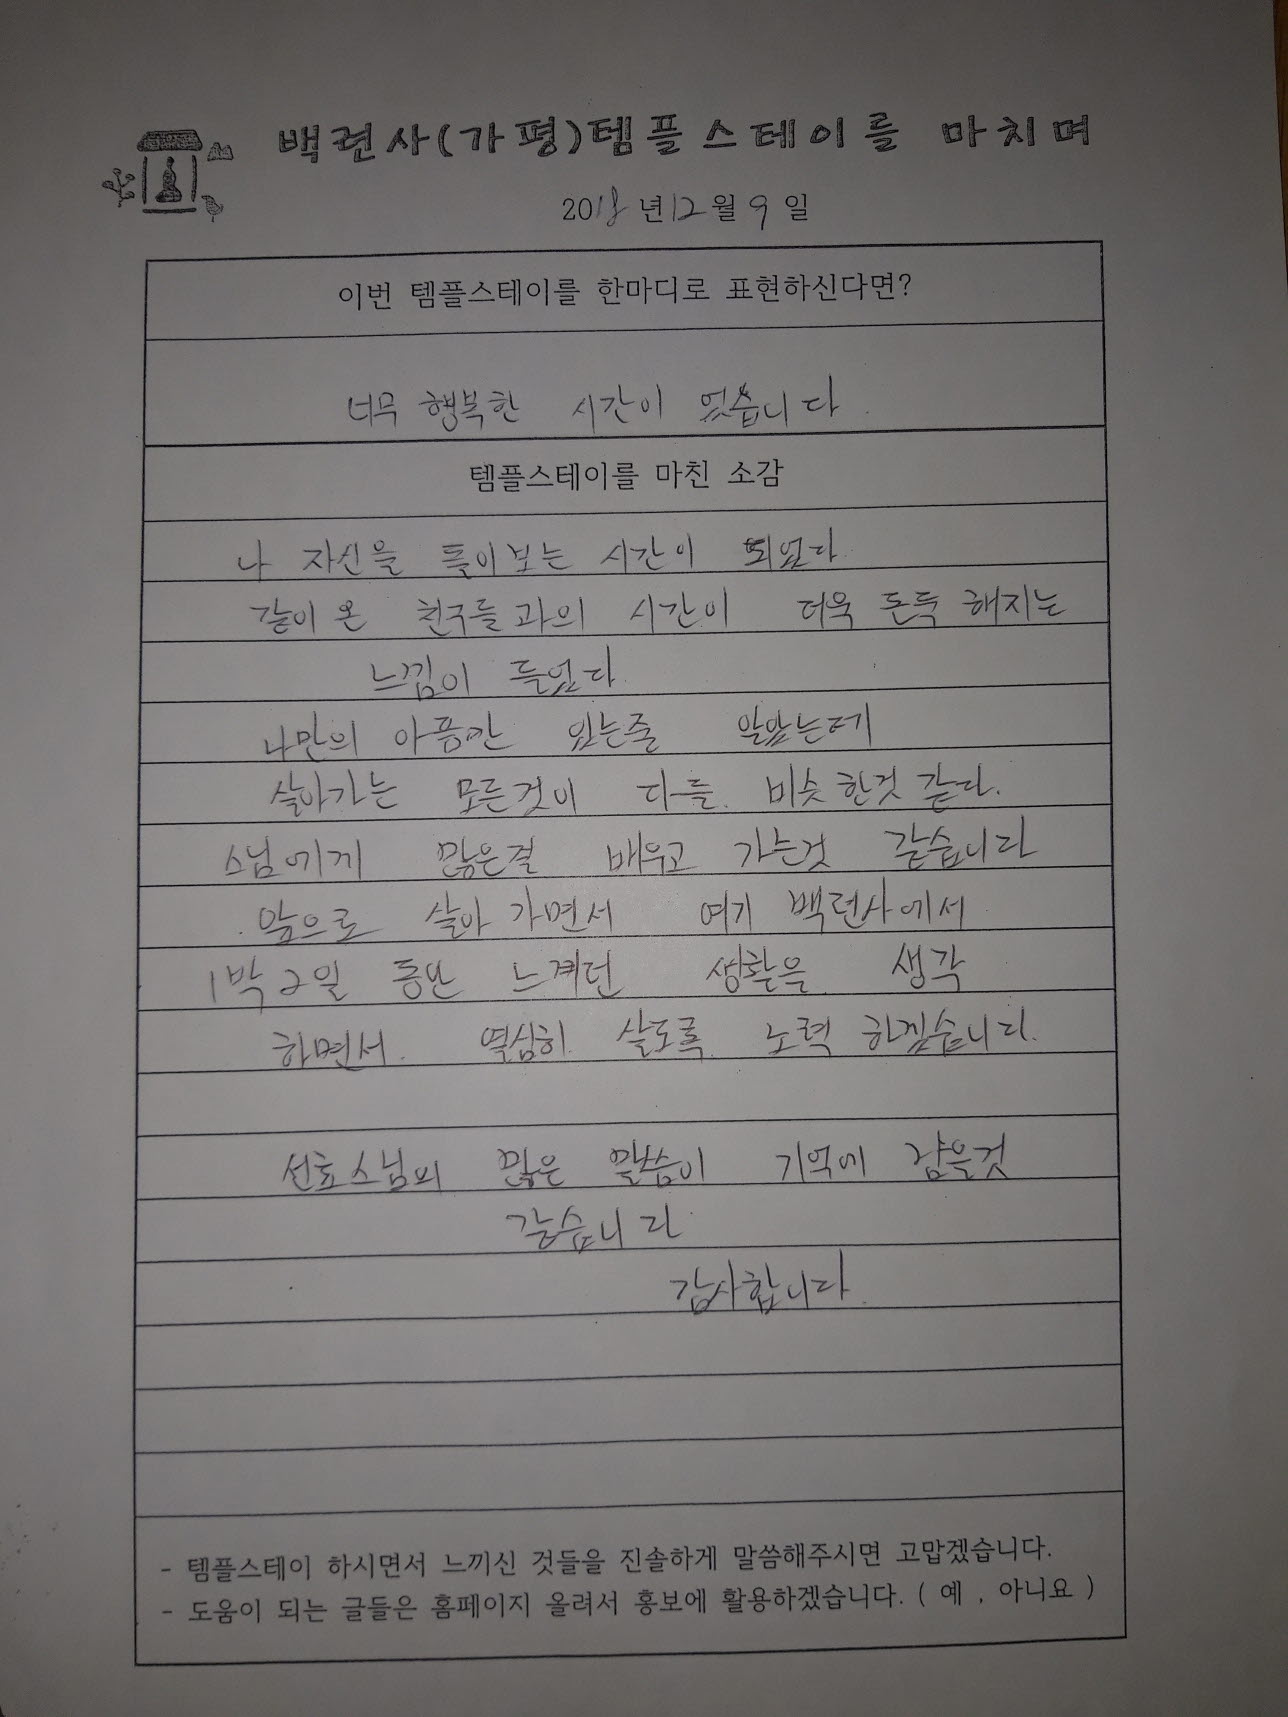 백련사(가평)템플스테이를 마치며
2018년12월 9일
이번 템플스테이를 한마디로 표현하신다면?
너무 행복한 시간이 었습니다.
템플스테이를 마친 소감
나 자신을 돌이보는 시간이 되었다
같이 온 친구들과의 시간이 더욱 돈독 해지는
느낌이 들었다
나만의 아픔만 있는줄 알았는데
살아가는 모든것이 다들 비슷한것 같다.
스님에게 많은걸 배우고 가는것 같습니다
앞으로 살아 가면서 여기 백련사에서
1박2일 동안 느껴던 생활을 생각
하면서. 열심히 살도록 노력 하겠습니다.
선효스님의 많은 말씀이 기억에 남을것
같습니다
감사합니다.
- 템플스테이 하시면서 느끼신 것들을 진솔하게 말씀해주시면 고맙겠습니다.
- 도움이 되는 글들은 홈페이지 올려서 홍보에 활용하겠습니다. ( 예 , 아니요 )